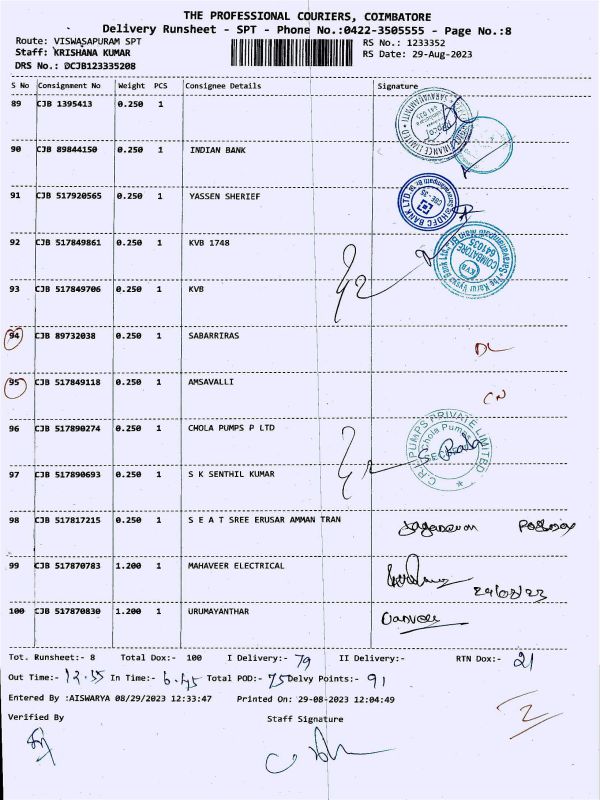 THE PROFESSIONAL COURIERS, COIMBATORE
Delivery Runsheet - SPT - Phone No.:0422-3505555 - Page No.:8
Route: VISWASAPURAM SPT RS No.: 1233352
Staff: KRISHANA KUMAR RS Date: 29-Aug-2023
DRS No.: DCJB123335208
S No Consignment No Weight PCS Consignee Details Signature
89 CJB 1395413 0.250 1
90 CJB 89844150 0.250 1 INDIAN BANK
91 CJB 517920565 0.250 1 YASSEN SHERIEF
HDFC BANK LTD.
92 CJB 517849861 0.250 1 KVB 1748
COIMBATORE
641035
KVB
93 CJB 517849706 0.250 1 KVB
94 CJB 89732038 0.250 1 SABARRIRAS DL
95 CJB 517849118 0.250 1 AMSAVALLI CN
96 CJB 517890274 0.250 1 CHOLA PUMPS P LTD
PUMPS PRIVATE LIMITED
Chola Pumps
97 CJB 517890693 0.250 1 S K SENTHIL KUMAR
98 CJB 517817215 0.250 1 S E A T SREE ERUSAR AMMAN TRAN
99 CJB 517870783 1.200 1 MAHAVEER ELECTRICAL 29/08/23
100 CJB 517870830 1.200 1 URUMAYANTHAR
Tot. Runsheet:- 8 Total Dox:- 100 I Delivery:- 79 II Delivery:- RTN Dox:- 21
Out Time:- 12.55 In Time:- 6.45 Total POD:- 75 Delvy Points:- 91
Entered By :AISWARYA 08/29/2023 12:33:47 Printed On: 29-08-2023 12:04:49
Verified By Staff Signature